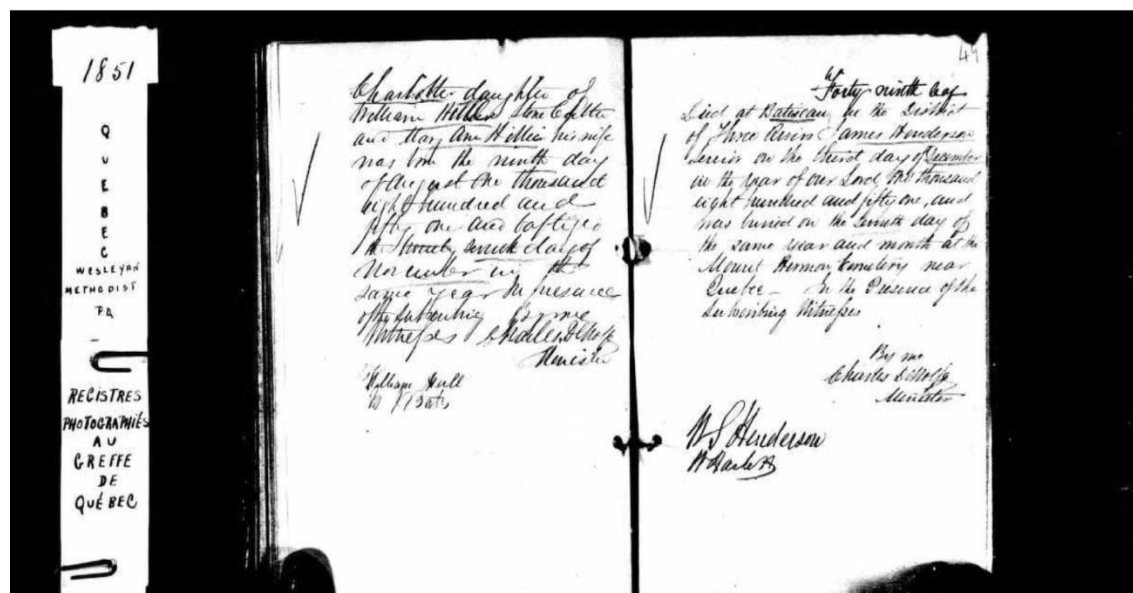 1851
QUEBEC
WESLEYAN
METHODIST
PA
REGISTRES
PHOTOGRAPHIÉS
AU
GREFFE
DE
QUÉBEC
Charlotte daughter of
William Stone Cutter
and Mary Ann his wife
was born the ninth day
of August One thousand
eight hundred and
fifty one and baptized
the day of
November in the
same year In presence
of the Subscribing By me
Witnesses Charles DeWolfe
Minister
William Hull
49
Forty ninth leaf
Died at Batiscan in the District
of Three Rivers James Henderson
Senior on the third day of December
in the year of our Lord, One thousand
eight hundred and fifty one, and
was buried on the day of
the same year and month at the
Mount Hermon Cemetery near
Quebec — In the Presence of the
Subscribing Witnesses
By me
Charles DeWolfe
Minister
W S Henderson